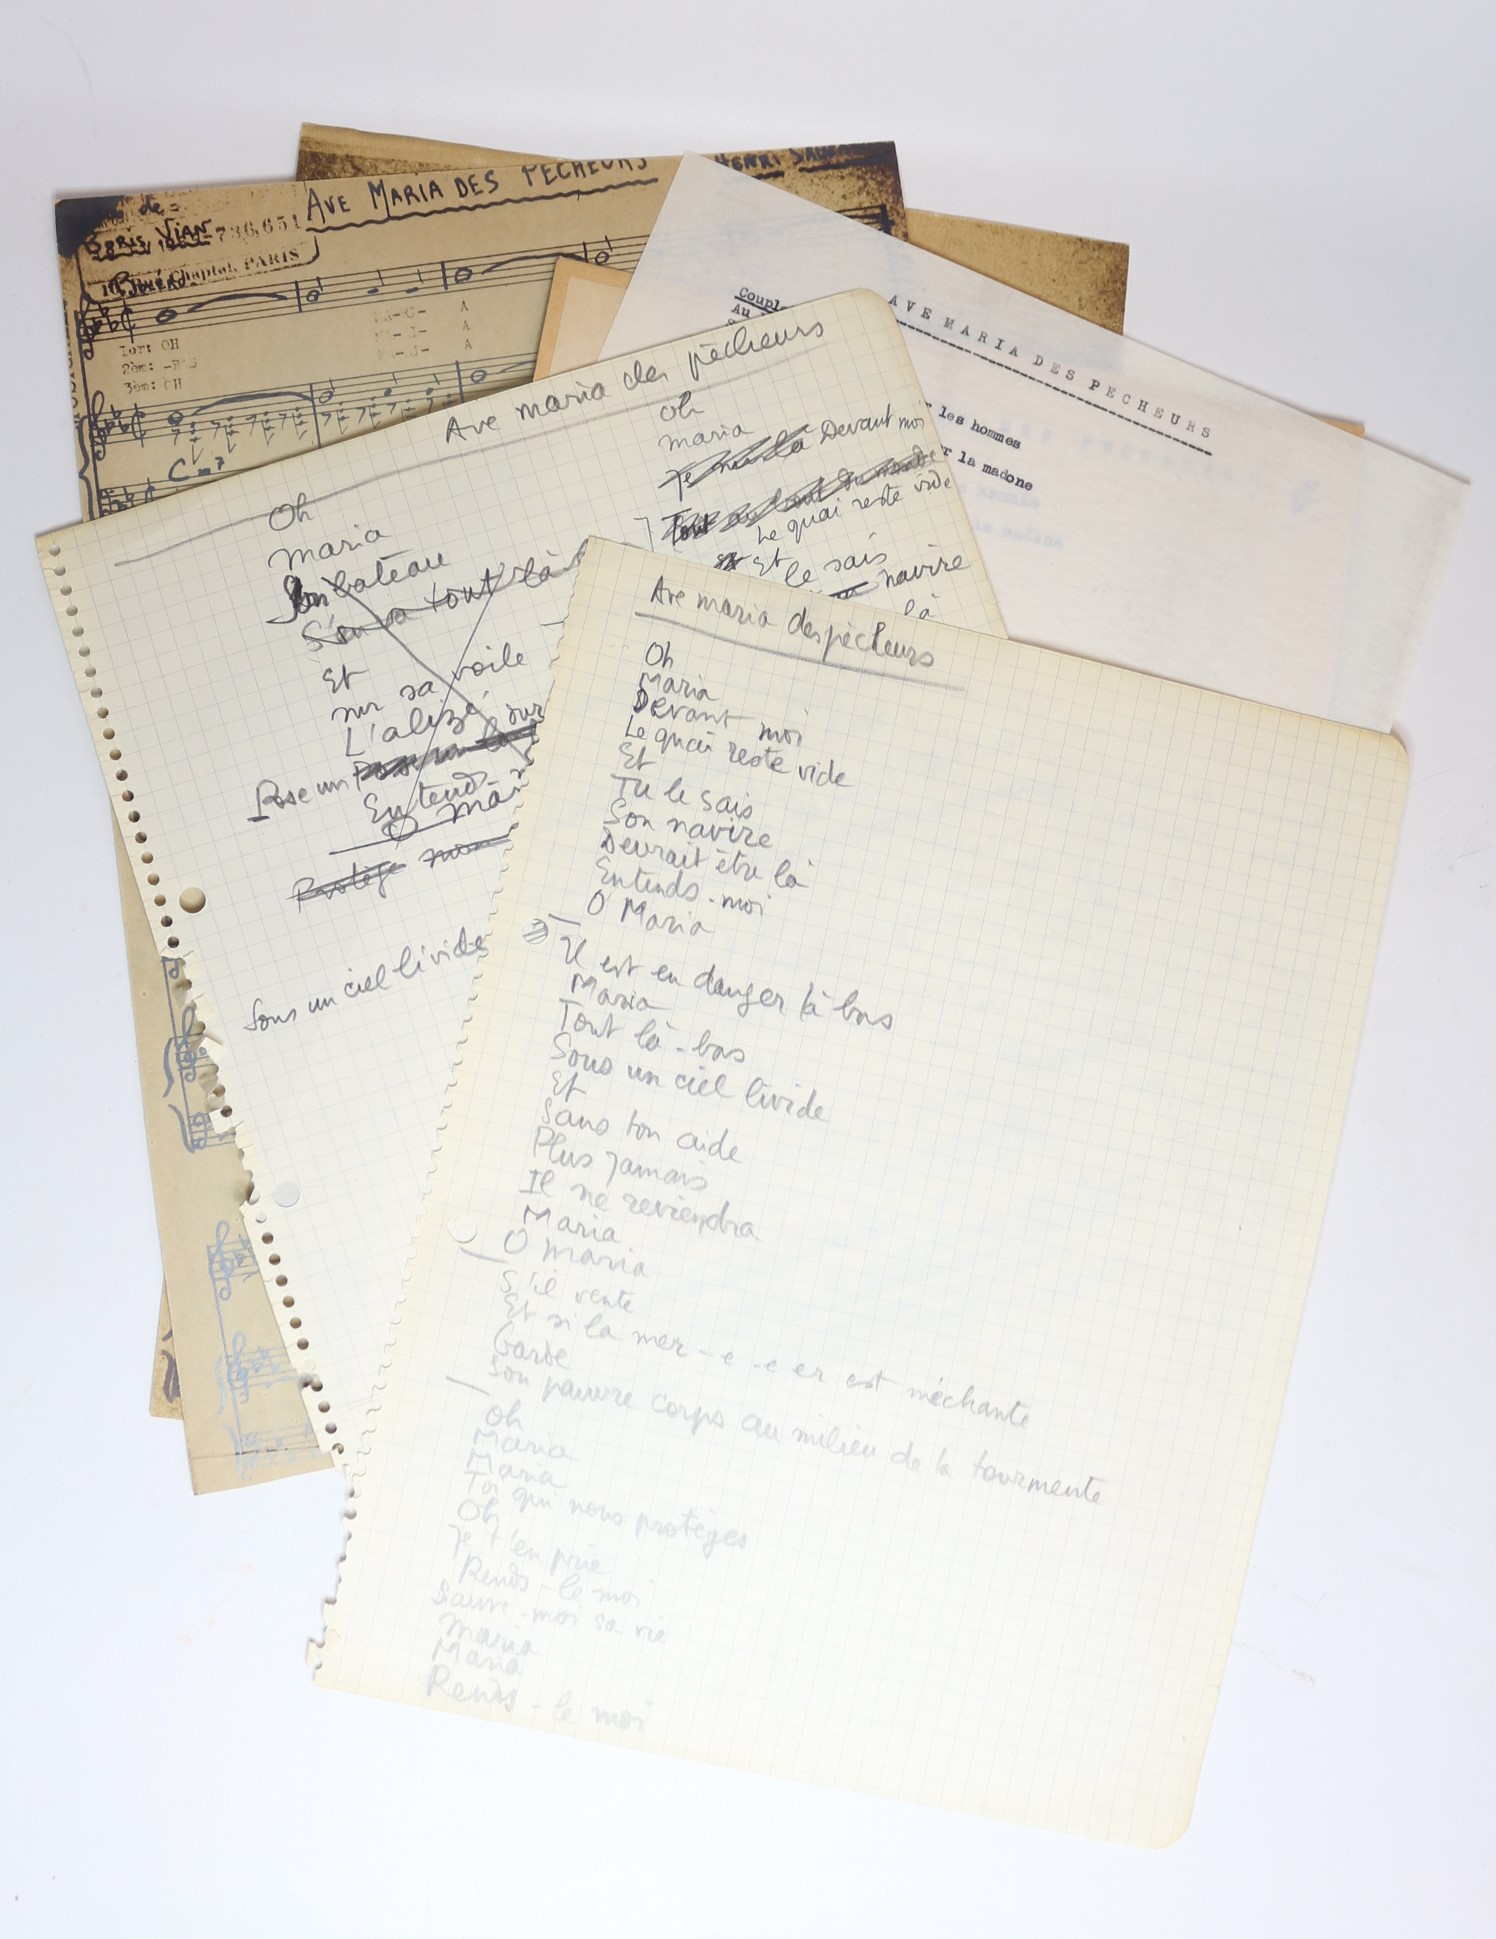 AVE MARIA DES PECHEURS
HENRI
de
BORIS VIAN
736,651
Rue Chaptal, PARIS
MA-RI- A
MA-RI- A
MA-RI- A
1er: OH
2ème:
3ème: OH
Cm7
AVE MARIA DES PECHEURS
Couple
Au
les hommes
r la madone
Ave maria des pêcheurs
Oh
maria
Son bateau
S'en va tout là
Et
sur sa voile
L'alizé
Pose un
sur
Entend-
O Mar
Protège mon
Sous un ciel livide
Oh
maria
Je suis là Devant moi
Tout au bout du monde
Le quai reste vide
Et
le sais
navire
là
Ave maria des pêcheurs
Oh
Maria
Devant moi
Le quai reste vide
Et
Tu le sais
Son navire
Devrait être là
Entends-moi
O Maria
Il est en danger là bas
Maria
Tout là-bas
Sous un ciel livide
Et
Sans ton aide
Plus jamais
Il ne reviendra
Maria
O maria
S'il vente
Et si la mer-e-e er est méchante
Garde
Son pauvre corps au milieu de la tourmente
Oh
Maria
Maria
Toi qui nous protèges
Oh
Je t'en prie
Rends-le moi
Sauve-moi sa vie
Maria
Maria
Rends-le moi